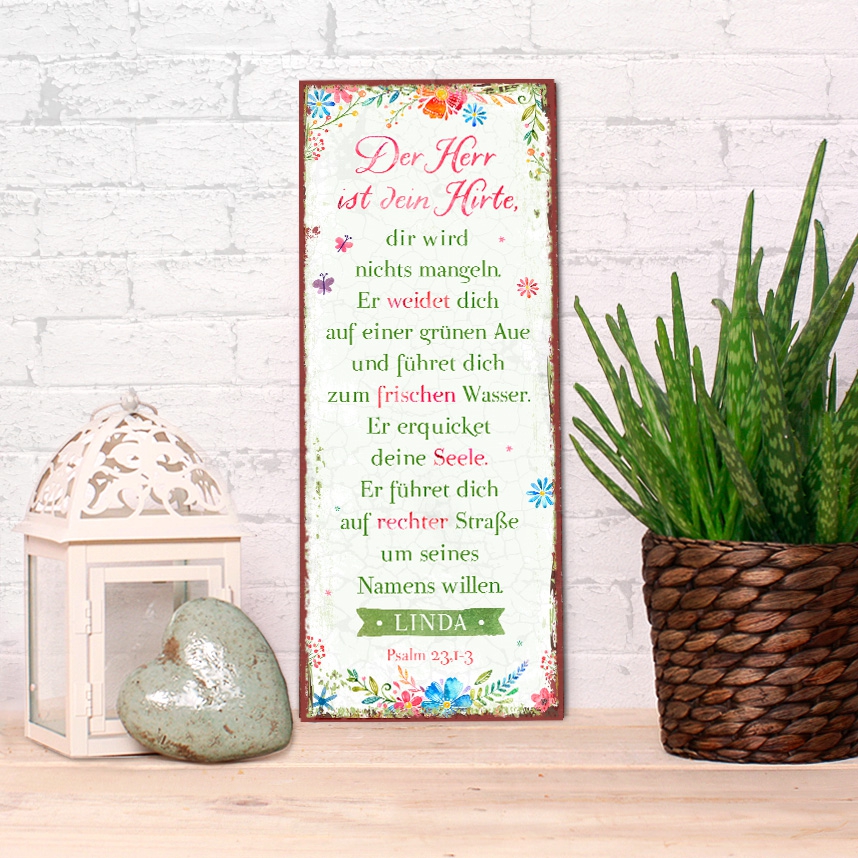 Der Herr
ist dein Hirte,
dir wird
nichts mangeln.
Er weidet dich
auf einer grünen Aue
und führet dich
zum frischen Wasser.
Er erquicket
deine Seele.
Er führet dich
auf rechter Straße
um seines
Namens willen.
• LINDA •
Psalm 23,1-3